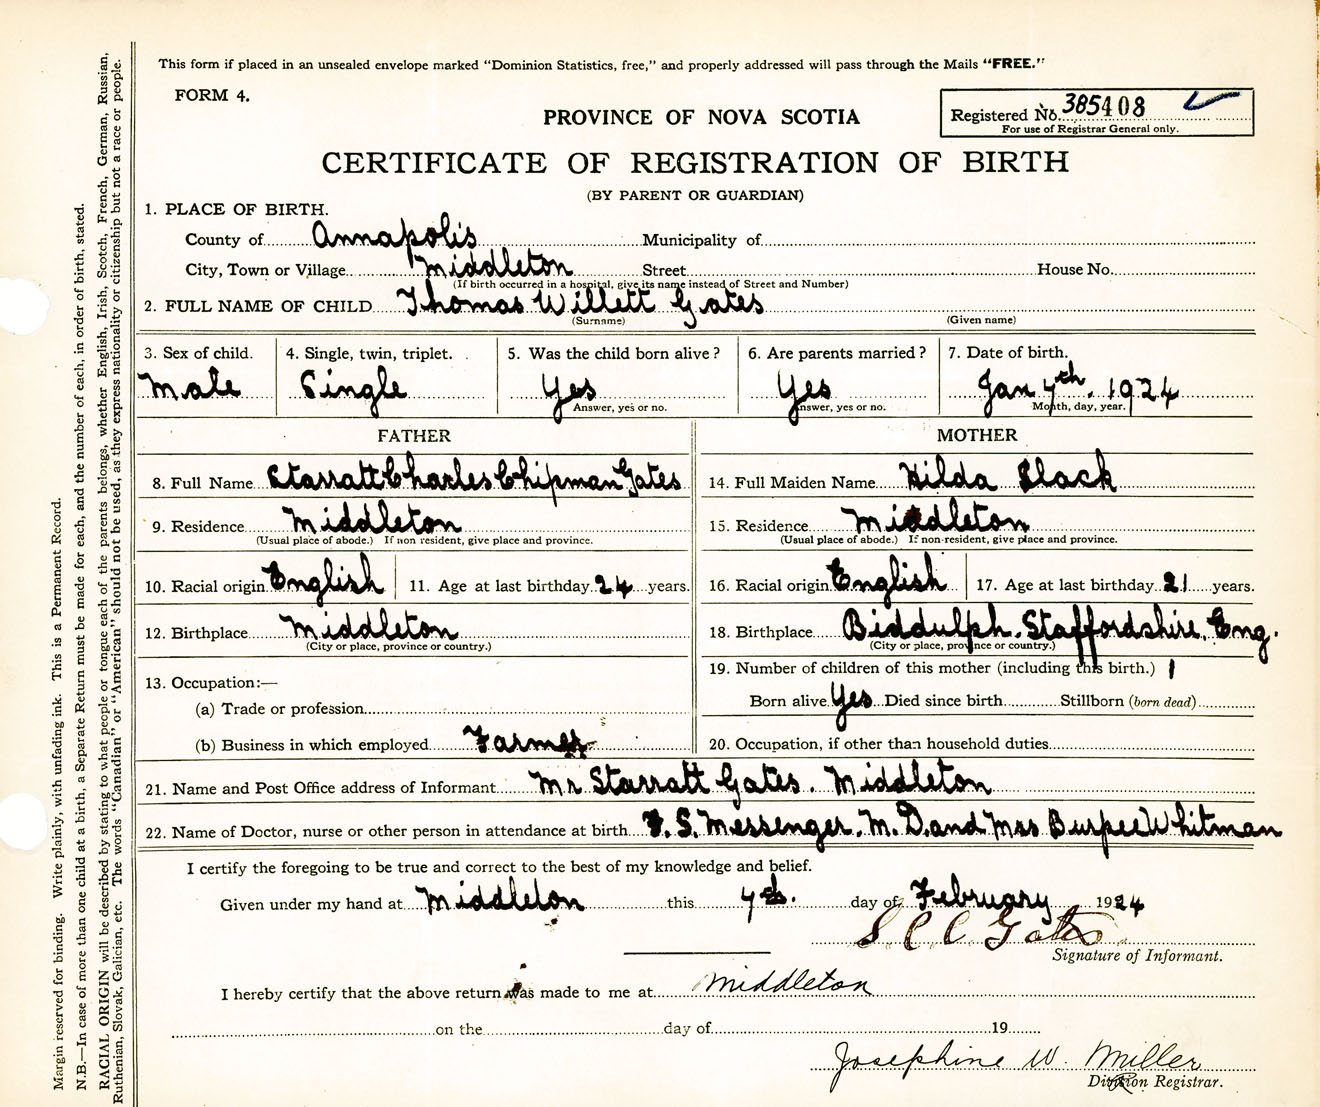 This form if placed in an unsealed envelope marked "Dominion Statistics, free," and properly addressed will pass through the Mails "FREE."
FORM 4.
Registered No. 385408
For use of Registrar General only.
PROVINCE OF NOVA SCOTIA
CERTIFICATE OF REGISTRATION OF BIRTH
(BY PARENT OR GUARDIAN)
1. PLACE OF BIRTH.
County of Annapolis Municipality of
City, Town or Village Middleton Street House No.
(If birth occurred in a hospital, give its name instead of Street and Number)
2. FULL NAME OF CHILD Thomas Willett Gates
(Surname) (Given name)
3. Sex of child. 4. Single, twin, triplet. 5. Was the child born alive? 6. Are parents married? 7. Date of birth.
Male Single Yes Yes Jan 7th. 1924
Answer, yes or no. Answer, yes or no. Month, day, year.
FATHER MOTHER
8. Full Name Starratt Charles Chipman Gates 14. Full Maiden Name Hilda Slack
9. Residence Middleton 15. Residence Middleton
(Usual place of abode.) If non resident, give place and province. (Usual place of abode.) If non-resident, give place and province.
10. Racial origin English 11. Age at last birthday 24 years. 16. Racial origin English 17. Age at last birthday 21 years.
12. Birthplace Middleton 18. Birthplace Biddulph. Staffordshire. Eng.
(City or place, province or country.) (City or place, province or country.)
13. Occupation:— 19. Number of children of this mother (including this birth.) 1
(a) Trade or profession Born alive Yes Died since birth Stillborn (born dead)
(b) Business in which employed Farmer 20. Occupation, if other than household duties
21. Name and Post Office address of Informant Mr Starratt Gates. Middleton
22. Name of Doctor, nurse or other person in attendance at birth F. S. Messenger. M.D. and Mrs Burpee Whitman
I certify the foregoing to be true and correct to the best of my knowledge and belief.
Given under my hand at Middleton this 7th. day of February 1924
S C C Gates
Signature of Informant.
I hereby certify that the above return was made to me at Middleton
on the day of 19
Josephine W. Miller
Division Registrar.
Margin reserved for binding. Write plainly, with unfading ink. This is a Permanent Record.
N.B.—In case of more than one child at a birth, a Separate Return must be made for each, and the number of each, in order of birth, stated.
RACIAL ORIGIN will be described by stating to what people or tongue each of the parents belongs, whether English, Irish, Scotch, French, German, Russian,
Ruthenian, Slovak, Galician, etc. The words "Canadian" or "American" should not be used, as they express nationality or citizenship but not a race or people.